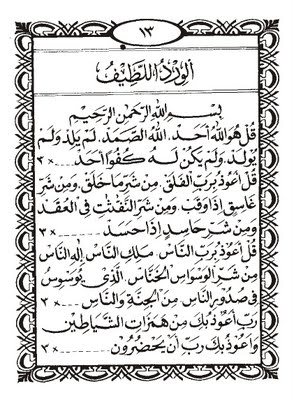 ١٣
اَلْوِرْدُ اللَّطِيْفُ
بِسْمِ اللهِ الرَّحْمٰنِ الرَّحِيْمِ
قُلْ هُوَ اللهُ أَحَد، اللهُ الصَّمَد، لَمْ يَلِدْ وَلَمْ
يُولَد، وَلَمْ يَكُنْ لَهُ كُفُوًا أَحَد ........ × ٣
قُلْ أَعُوْذُ بِرَبِّ الفَلَقِ، مِنْ شَرِّ مَا خَلَقَ، وَمِنْ شَرِّ
غَاسِقٍ إِذَا وَقَبَ، وَمِنْ شَرِّ النَّفّٰثٰتِ فِى الْعُقَدِ
وَمِنْ شَرِّ حَاسِدٍ إِذَا حَسَدَ ........ × ٣
قُلْ أَعُوْذُ بِرَبِّ النَّاسِ، مَلِكِ النَّاسِ، إِلٰهِ النَّاسِ
مِنْ شَرِّ الْوَسْوَاسِ الْخَنَّاسِ، الَّذِي يُوَسْوِسُ
فِى صُدُوْرِ النَّاسِ، مِنَ الْجِنَّةِ وَالنَّاسِ ....... × ٣
رَبِّ أَعُوْذُ بِكَ مِنْ هَمَزَاتِ الشَّيَاطِيْنِ
وَأَعُوْذُ بِكَ رَبِّ أَنْ يَحْضُرُوْنِ ........ × ٣